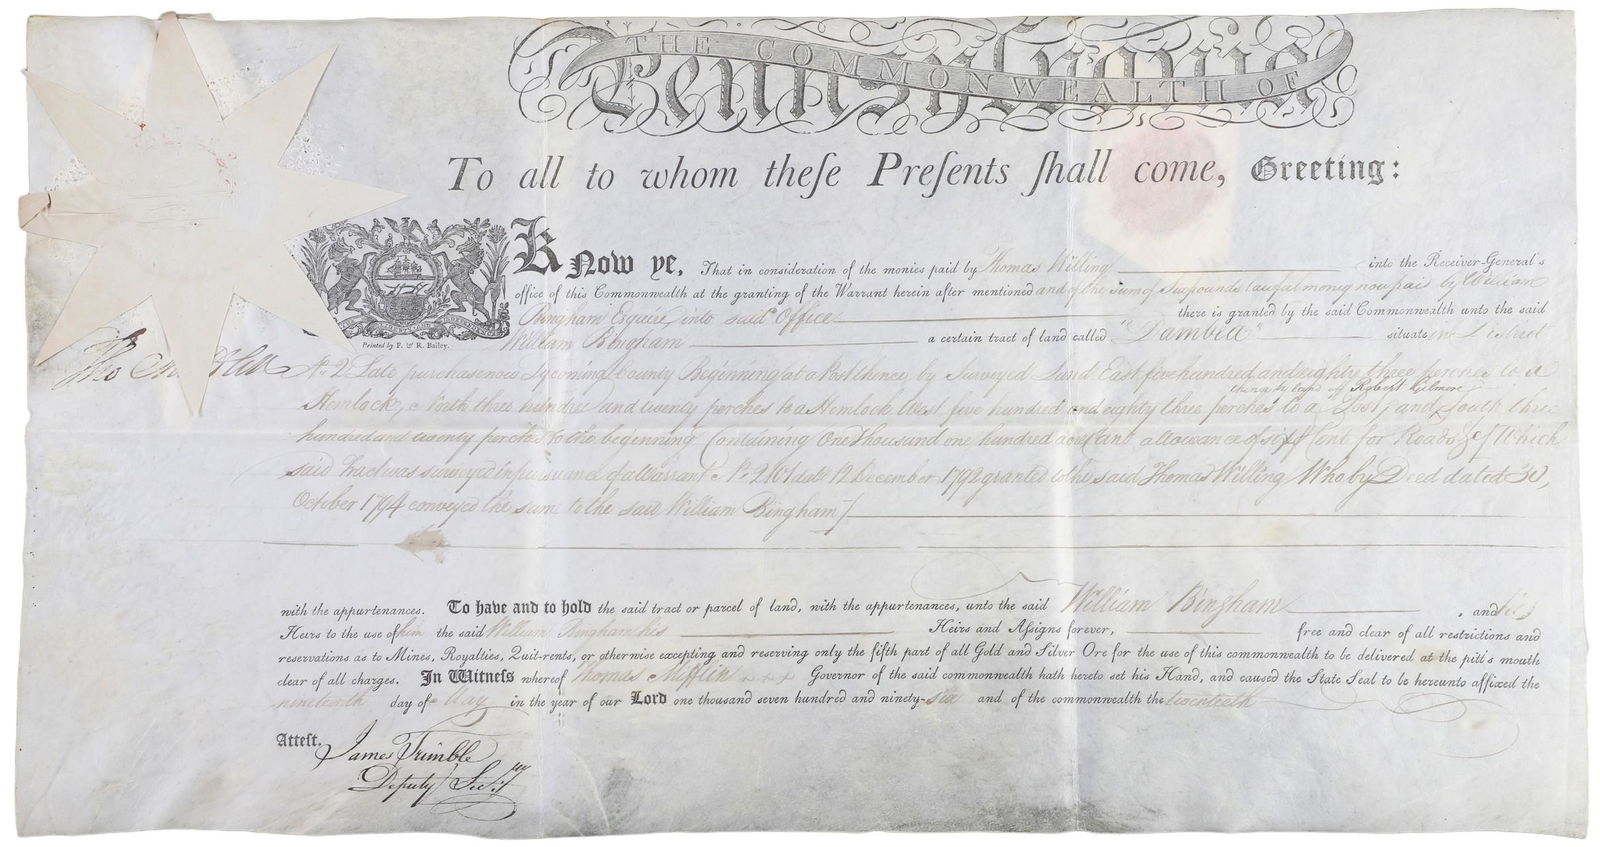 THE COMMONWEALTH OF
Pennsylvania
To all to whom theſe Preſents ſhall come, Greeting:
Know ye, That in consideration of the monies paid by Thomas Willing into the Receiver-General's
office of this Commonwealth at the granting of the Warrant herein after mentioned and of the sum of Six pounds lawful money now paid by William
Bingham Esquire into said Office there is granted by the said Commonwealth unto the said
William Bingham a certain tract of land called "Dambea" situate in District
Printed by F. & R. Bailey.
Tho Mifflin
No. 2 Late purchase now Lycoming County Beginning at a Post thence by Surveyed Land East five hundred and eighty three perches to a
thence by land of Robert Gilmore
Hemlock, North three hundred and twenty perches to a Hemlock West five hundred and eighty three perches to a Post, and South three
hundred and twenty perches to the beginning Containing One Thousand one hundred acres and allowance of six ⅌ Cent for Roads &c [Which
said Tract was surveyed in pursuance of a Warrant No. date 12 December 1792 granted to the said Thomas Willing Who by Deed dated 30,
October 1794 conveyed the same to the said William Bingham]
with the appurtenances. To have and to hold the said tract or parcel of land, with the appurtenances, unto the said William Bingham , and his
Heirs to the use of him the said William Bingham his Heirs and Aſsigns forever, free and clear of all restrictions and
reservations as to Mines, Royalties, Quit-rents, or otherwise excepting and reserving only the fifth part of all Gold and Silver Ore for the use of this commonwealth to be delivered at the pitt's mouth
clear of all charges. In Witneſs whereof Thomas Mifflin Governor of the said commonwealth hath hereto set his Hand, and caused the State Seal to be hereunto affixed the
nineteenth day of May in the year of our Lord one thousand seven hundred and ninety-six and of the commonwealth the twentieth
Atteſt.
James Trimble
Deputy Secry